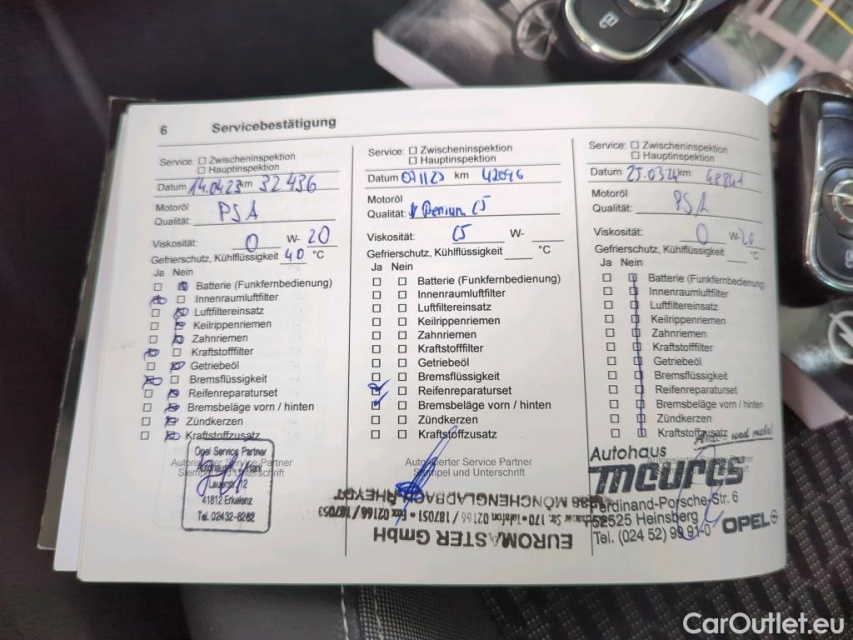 6 Servicebestätigung
Service: Zwischeninspektion
Hauptinspektion
Datum 14.04.23 km 32436
Motoröl
Qualität: PSA
Viskosität: 0 W-20
Gefrierschutz, Kühlflüssigkeit 40 °C
Ja Nein
Batterie (Funkfernbedienung)
Innenraumluftfilter
Luftfiltereinsatz
Keilrippenriemen
Zahnriemen
Kraftstofffilter
Getriebeöl
Bremsflüssigkeit
Reifenreparaturset
Bremsbeläge vorn / hinten
Zündkerzen
Kraftstoffzusatz
Autorisierter Service Partner
Stempel und Unterschrift
Opel Service Partner
41812 Erkelenz
Tel. 02432-
Service: Zwischeninspektion
Hauptinspektion
Datum km 42096
Motoröl
Qualität:
Viskosität: W-
Gefrierschutz, Kühlflüssigkeit °C
Ja Nein
Batterie (Funkfernbedienung)
Innenraumluftfilter
Luftfiltereinsatz
Keilrippenriemen
Zahnriemen
Kraftstofffilter
Getriebeöl
Bremsflüssigkeit
Reifenreparaturset
Bremsbeläge vorn / hinten
Zündkerzen
Kraftstoffzusatz
Autorisierter Service Partner
Stempel und Unterschrift
EUROMASTER GmbH
Str. 170 • Telefon 02166 / 187051 • Fax 02166 / 187053
MÖNCHENGLADBACH-RHEYDT
Service: Zwischeninspektion
Hauptinspektion
Datum 25.03.24 km 48841
Motoröl
Qualität: PSA
Viskosität: 0 W-20
Gefrierschutz, Kühlflüssigkeit °C
Ja Nein
Batterie (Funkfernbedienung)
Innenraumluftfilter
Luftfiltereinsatz
Keilrippenriemen
Zahnriemen
Kraftstofffilter
Getriebeöl
Bremsflüssigkeit
Reifenreparaturset
Bremsbeläge vorn / hinten
Zündkerzen
Kraftstoffzusatz
und mehr
Autohaus
meures
Ferdinand-Porsche-Str. 6
52525 Heinsberg
Tel. (024 52) 99 91-0
OPEL
CarOutlet.eu